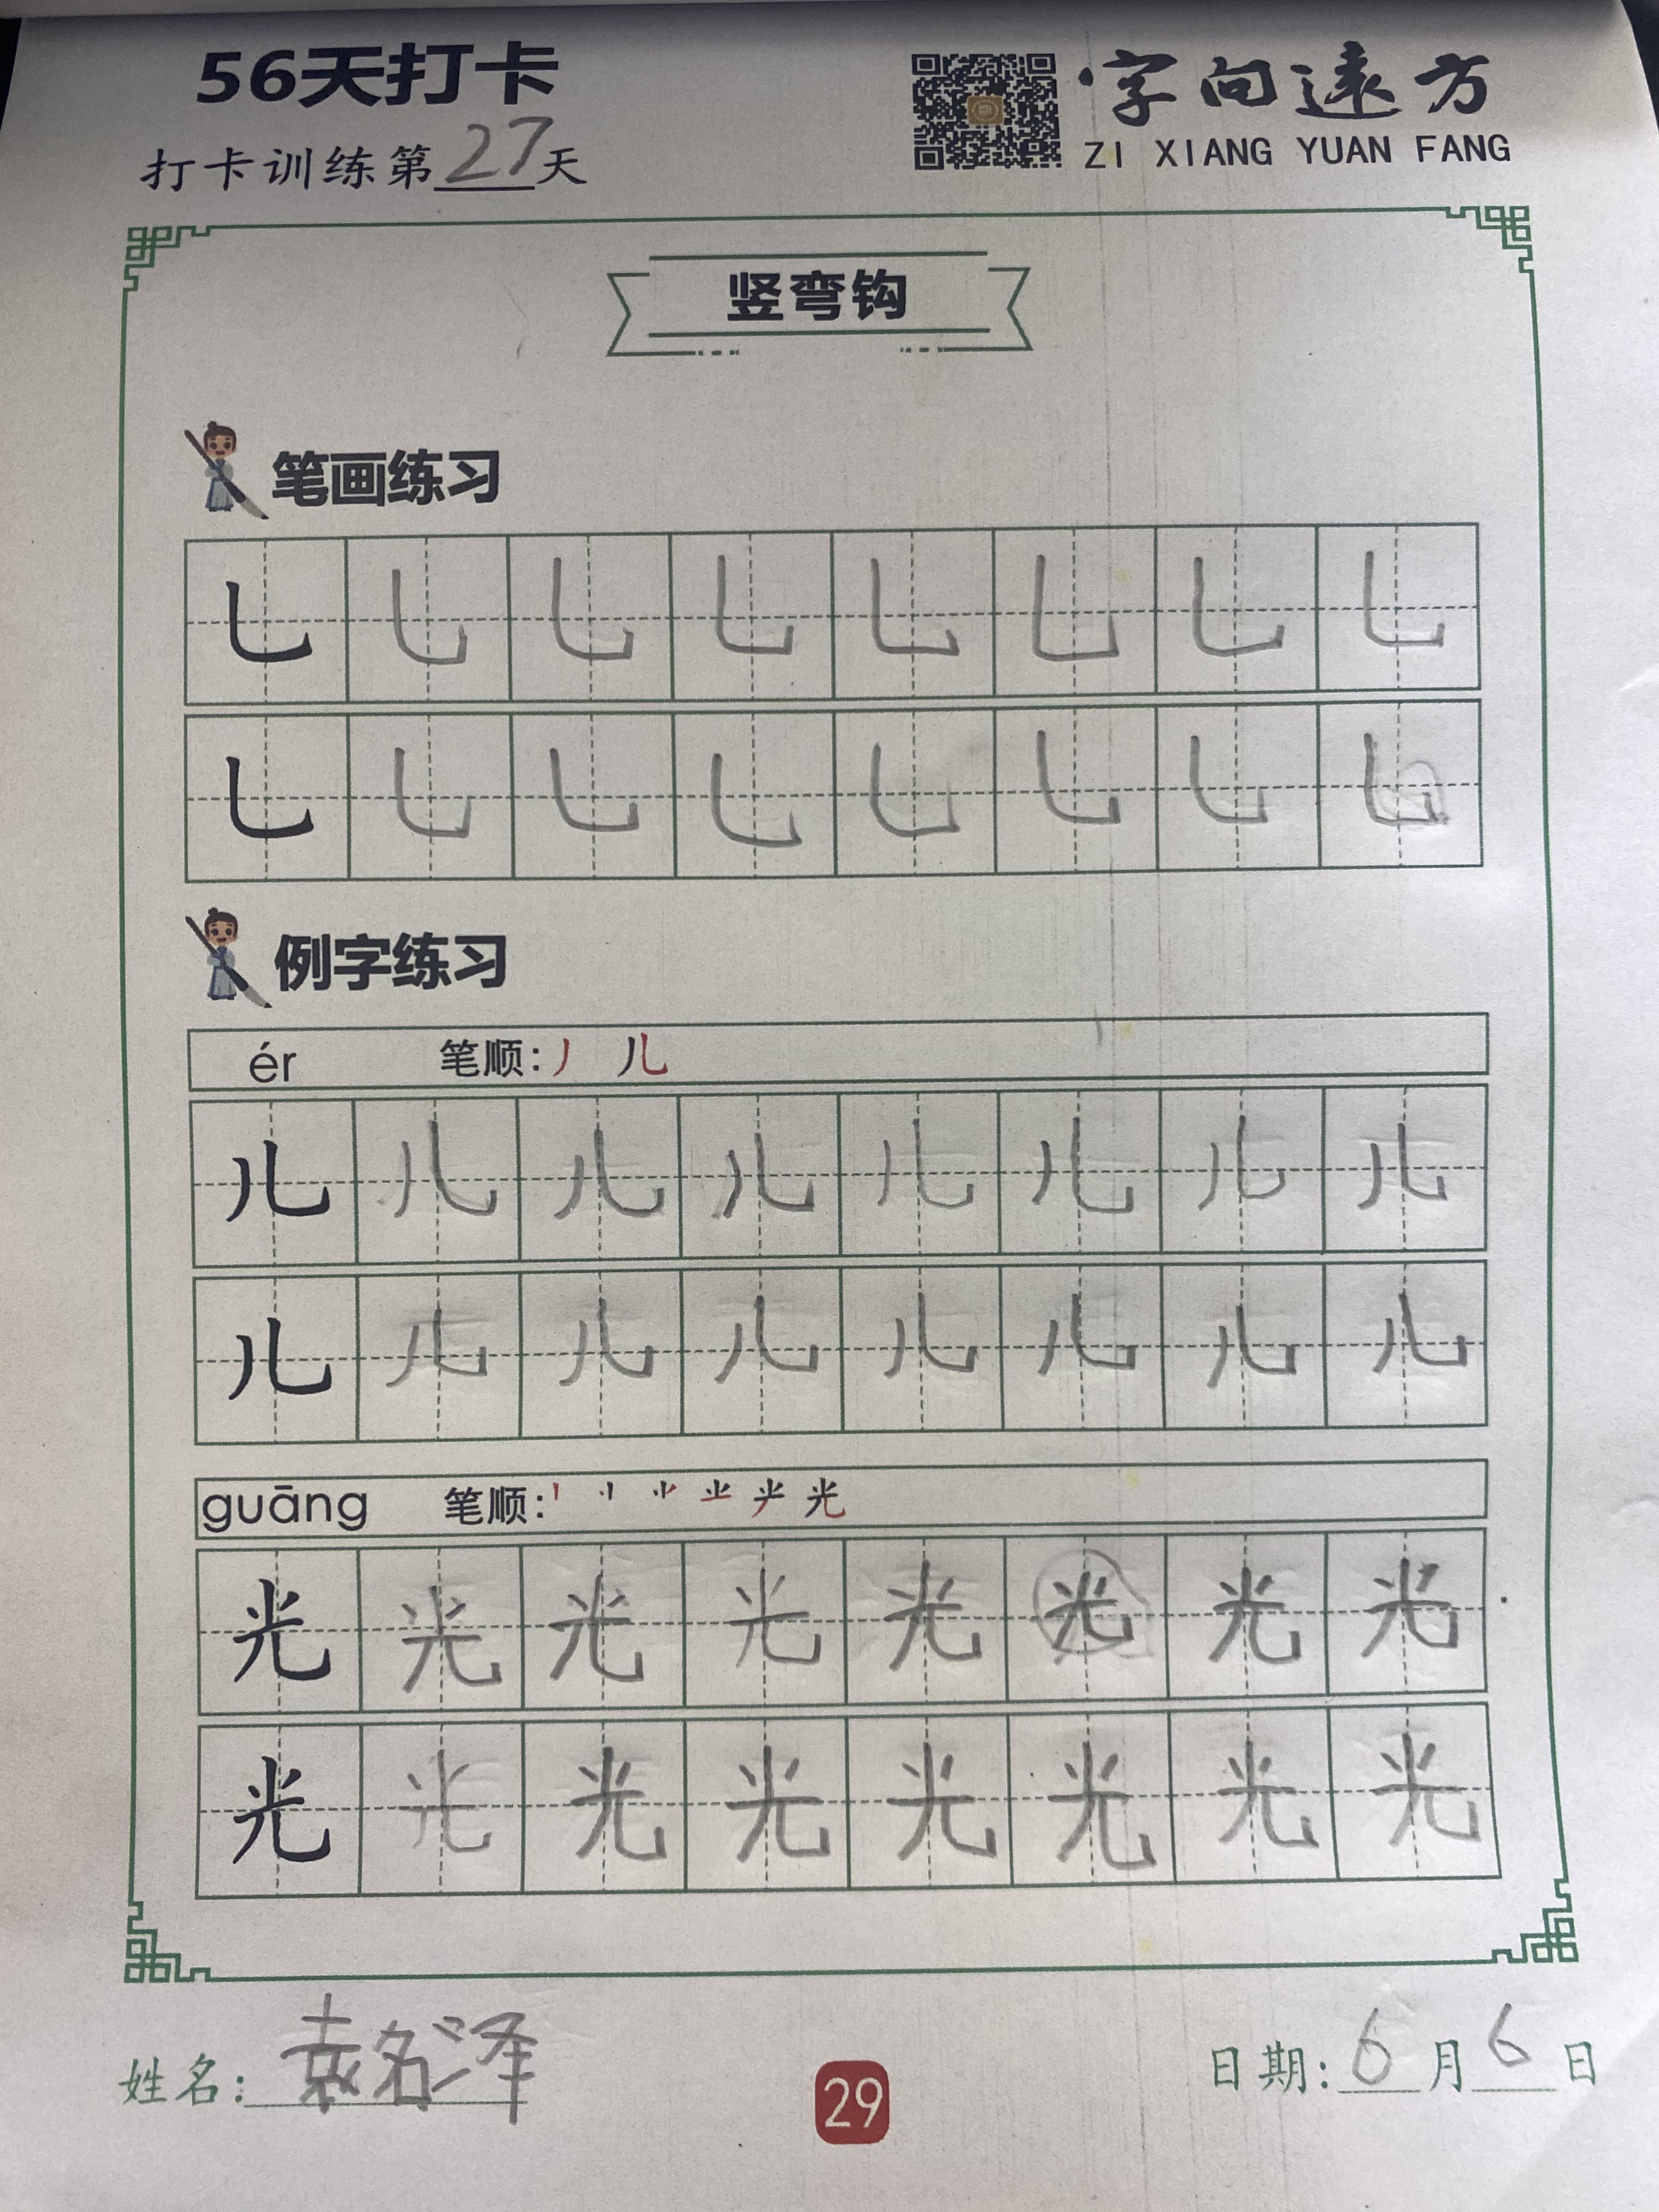 56天打卡
字向远方
打卡训练第27天
ZI XIANG YUAN FANG
竖弯钩
笔画练习
乚 乚 乚 乚 乚 乚 乚 乚
乚 乚 乚 乚 乚 乚 乚 乚
例字练习
ér 笔顺: 丿 儿
儿 儿 儿 儿 儿 儿 儿 儿
儿 儿 儿 儿 儿 儿 儿 儿
guāng 笔顺: 光
光 光 光 光 光 光 光 光
光 光 光 光 光 光 光 光
姓名: 袁名泽
29
日期: 6月6日